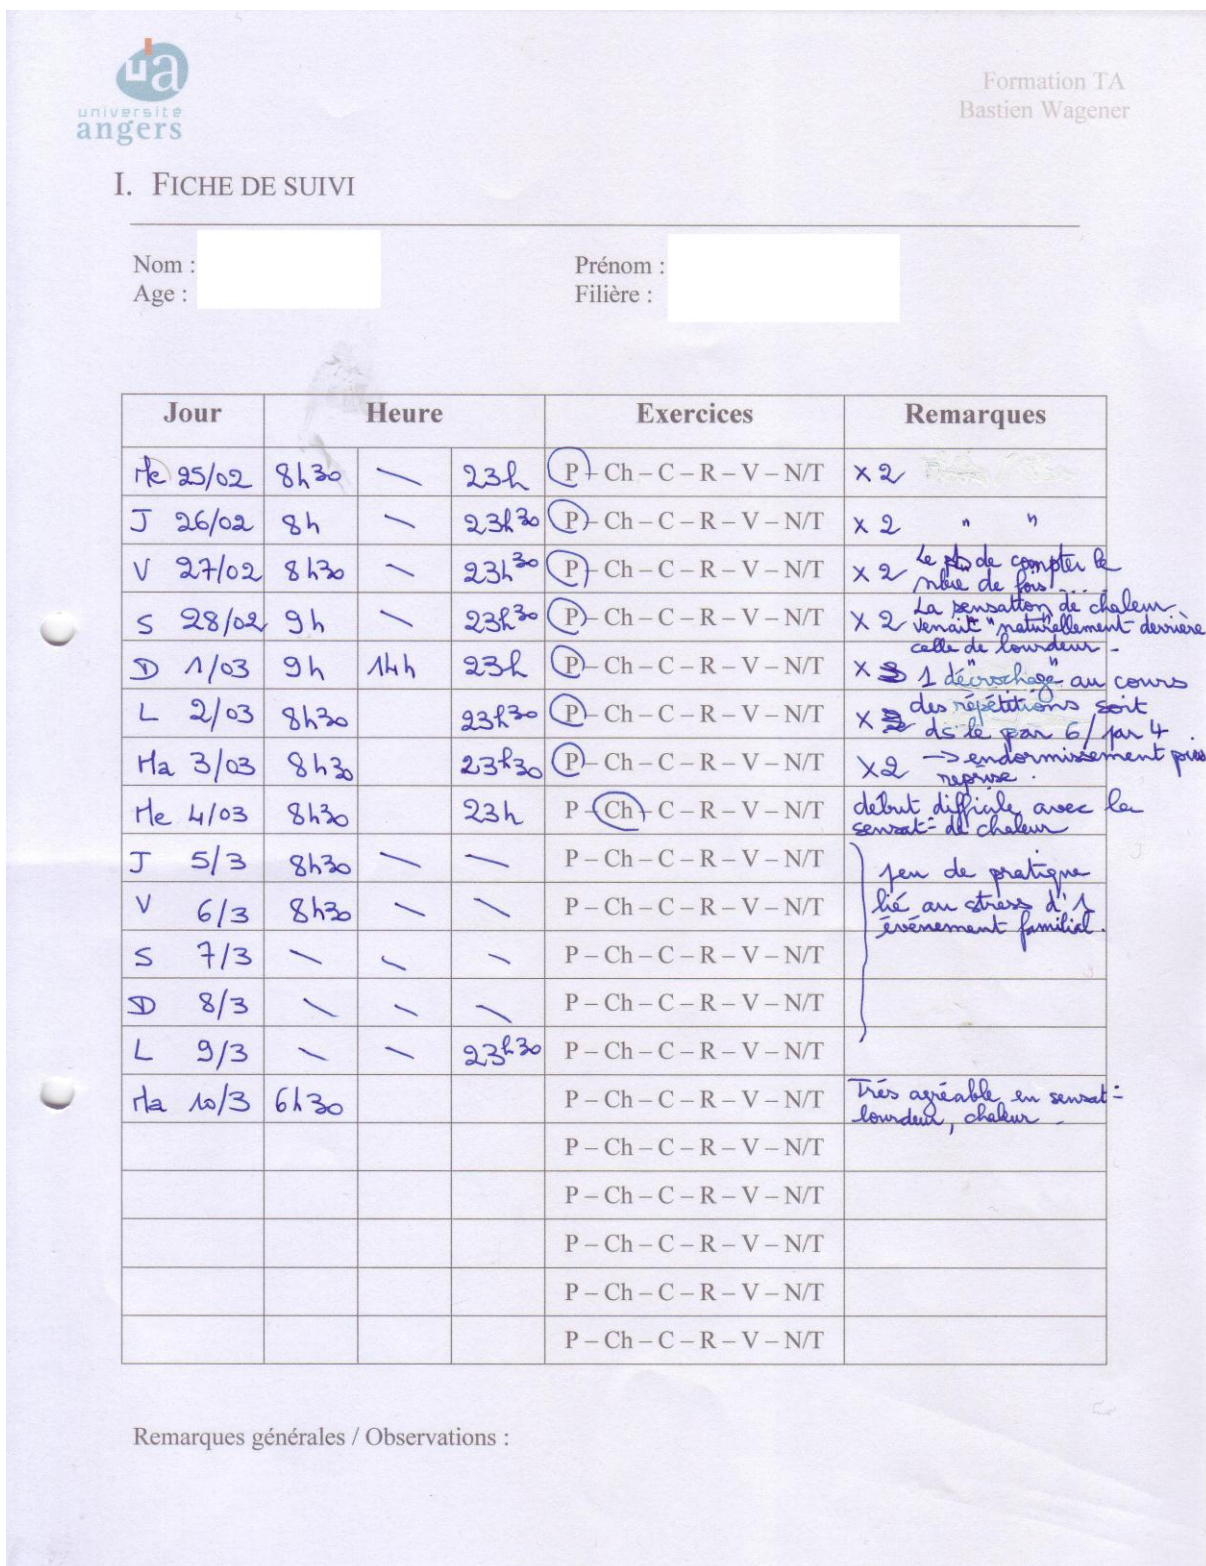 ua
université
angers
Formation TA
Bastien Wagener
I. FICHE DE SUIVI
Nom :
Prénom :
Age :
Filière :
Jour Heure Exercices Remarques
Me 25/02 8h30 — 23h P – Ch – C – R – V – N/T x 2
J 26/02 8h — 23h30 P – Ch – C – R – V – N/T x 2 " "
V 27/02 8h30 — 23h30 P – Ch – C – R – V – N/T x 2 Le de compter le
nbre de fois ...
S 28/02 9h — 23h30 P – Ch – C – R – V – N/T x 2 La sensation de chaleur
venait "naturellement" derrière
celle de lourdeur -
D 1/03 9h 14h 23h P – Ch – C – R – V – N/T x 3 1 "décrochage" au cours
L 2/03 8h30 23h30 P – Ch – C – R – V – N/T x 2 des répétitions soit
ds le par 6 / par 4
Ma 3/03 8h30 23h30 P – Ch – C – R – V – N/T x2 -> endormissement puis
reprise.
Me 4/03 8h30 23h P – Ch – C – R – V – N/T début difficile avec la
sensat- de chaleur
J 5/3 8h30 — — P – Ch – C – R – V – N/T peu de pratique
V 6/3 8h30 — — P – Ch – C – R – V – N/T lié au stress d'1
événement familial.
S 7/3 — — — P – Ch – C – R – V – N/T
D 8/3 — — — P – Ch – C – R – V – N/T
L 9/3 — — 23h30 P – Ch – C – R – V – N/T
Ma 10/3 6h30 P – Ch – C – R – V – N/T Très agréable en sensat-
lourdeur, chaleur -
P – Ch – C – R – V – N/T
P – Ch – C – R – V – N/T
P – Ch – C – R – V – N/T
P – Ch – C – R – V – N/T
P – Ch – C – R – V – N/T
Remarques générales / Observations :